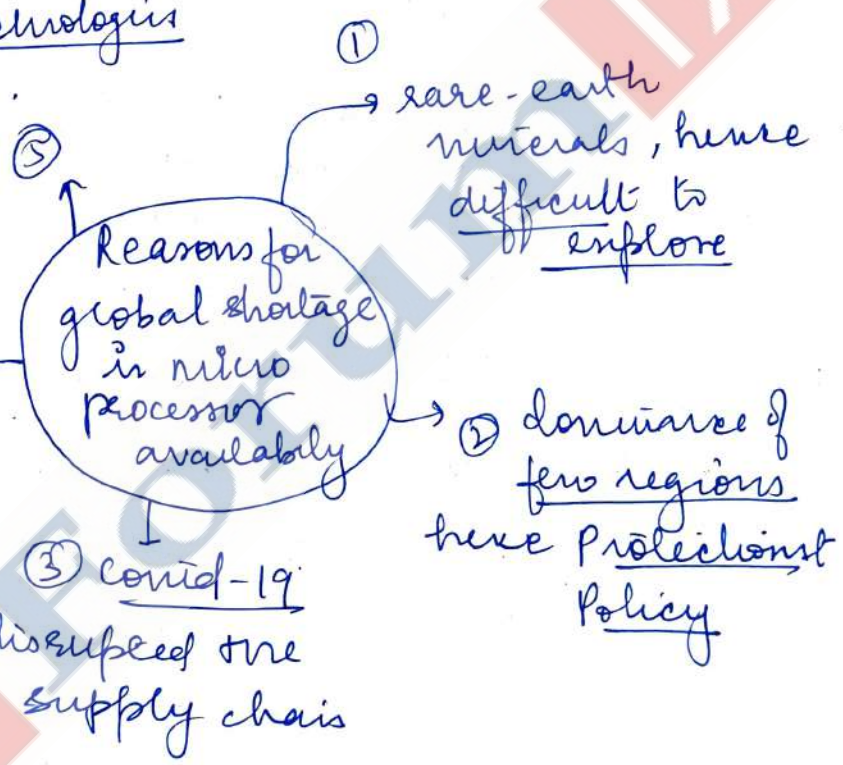 chnologies
①
→ rare-earth
minerals, hence
difficult to
explore
⑤
Reasons for
global shortage
in micro
processor
availabily
② dominance of
few regions
hence Protectionst
Policy
③ Covid-19
disrupted the
supply chain
Forum